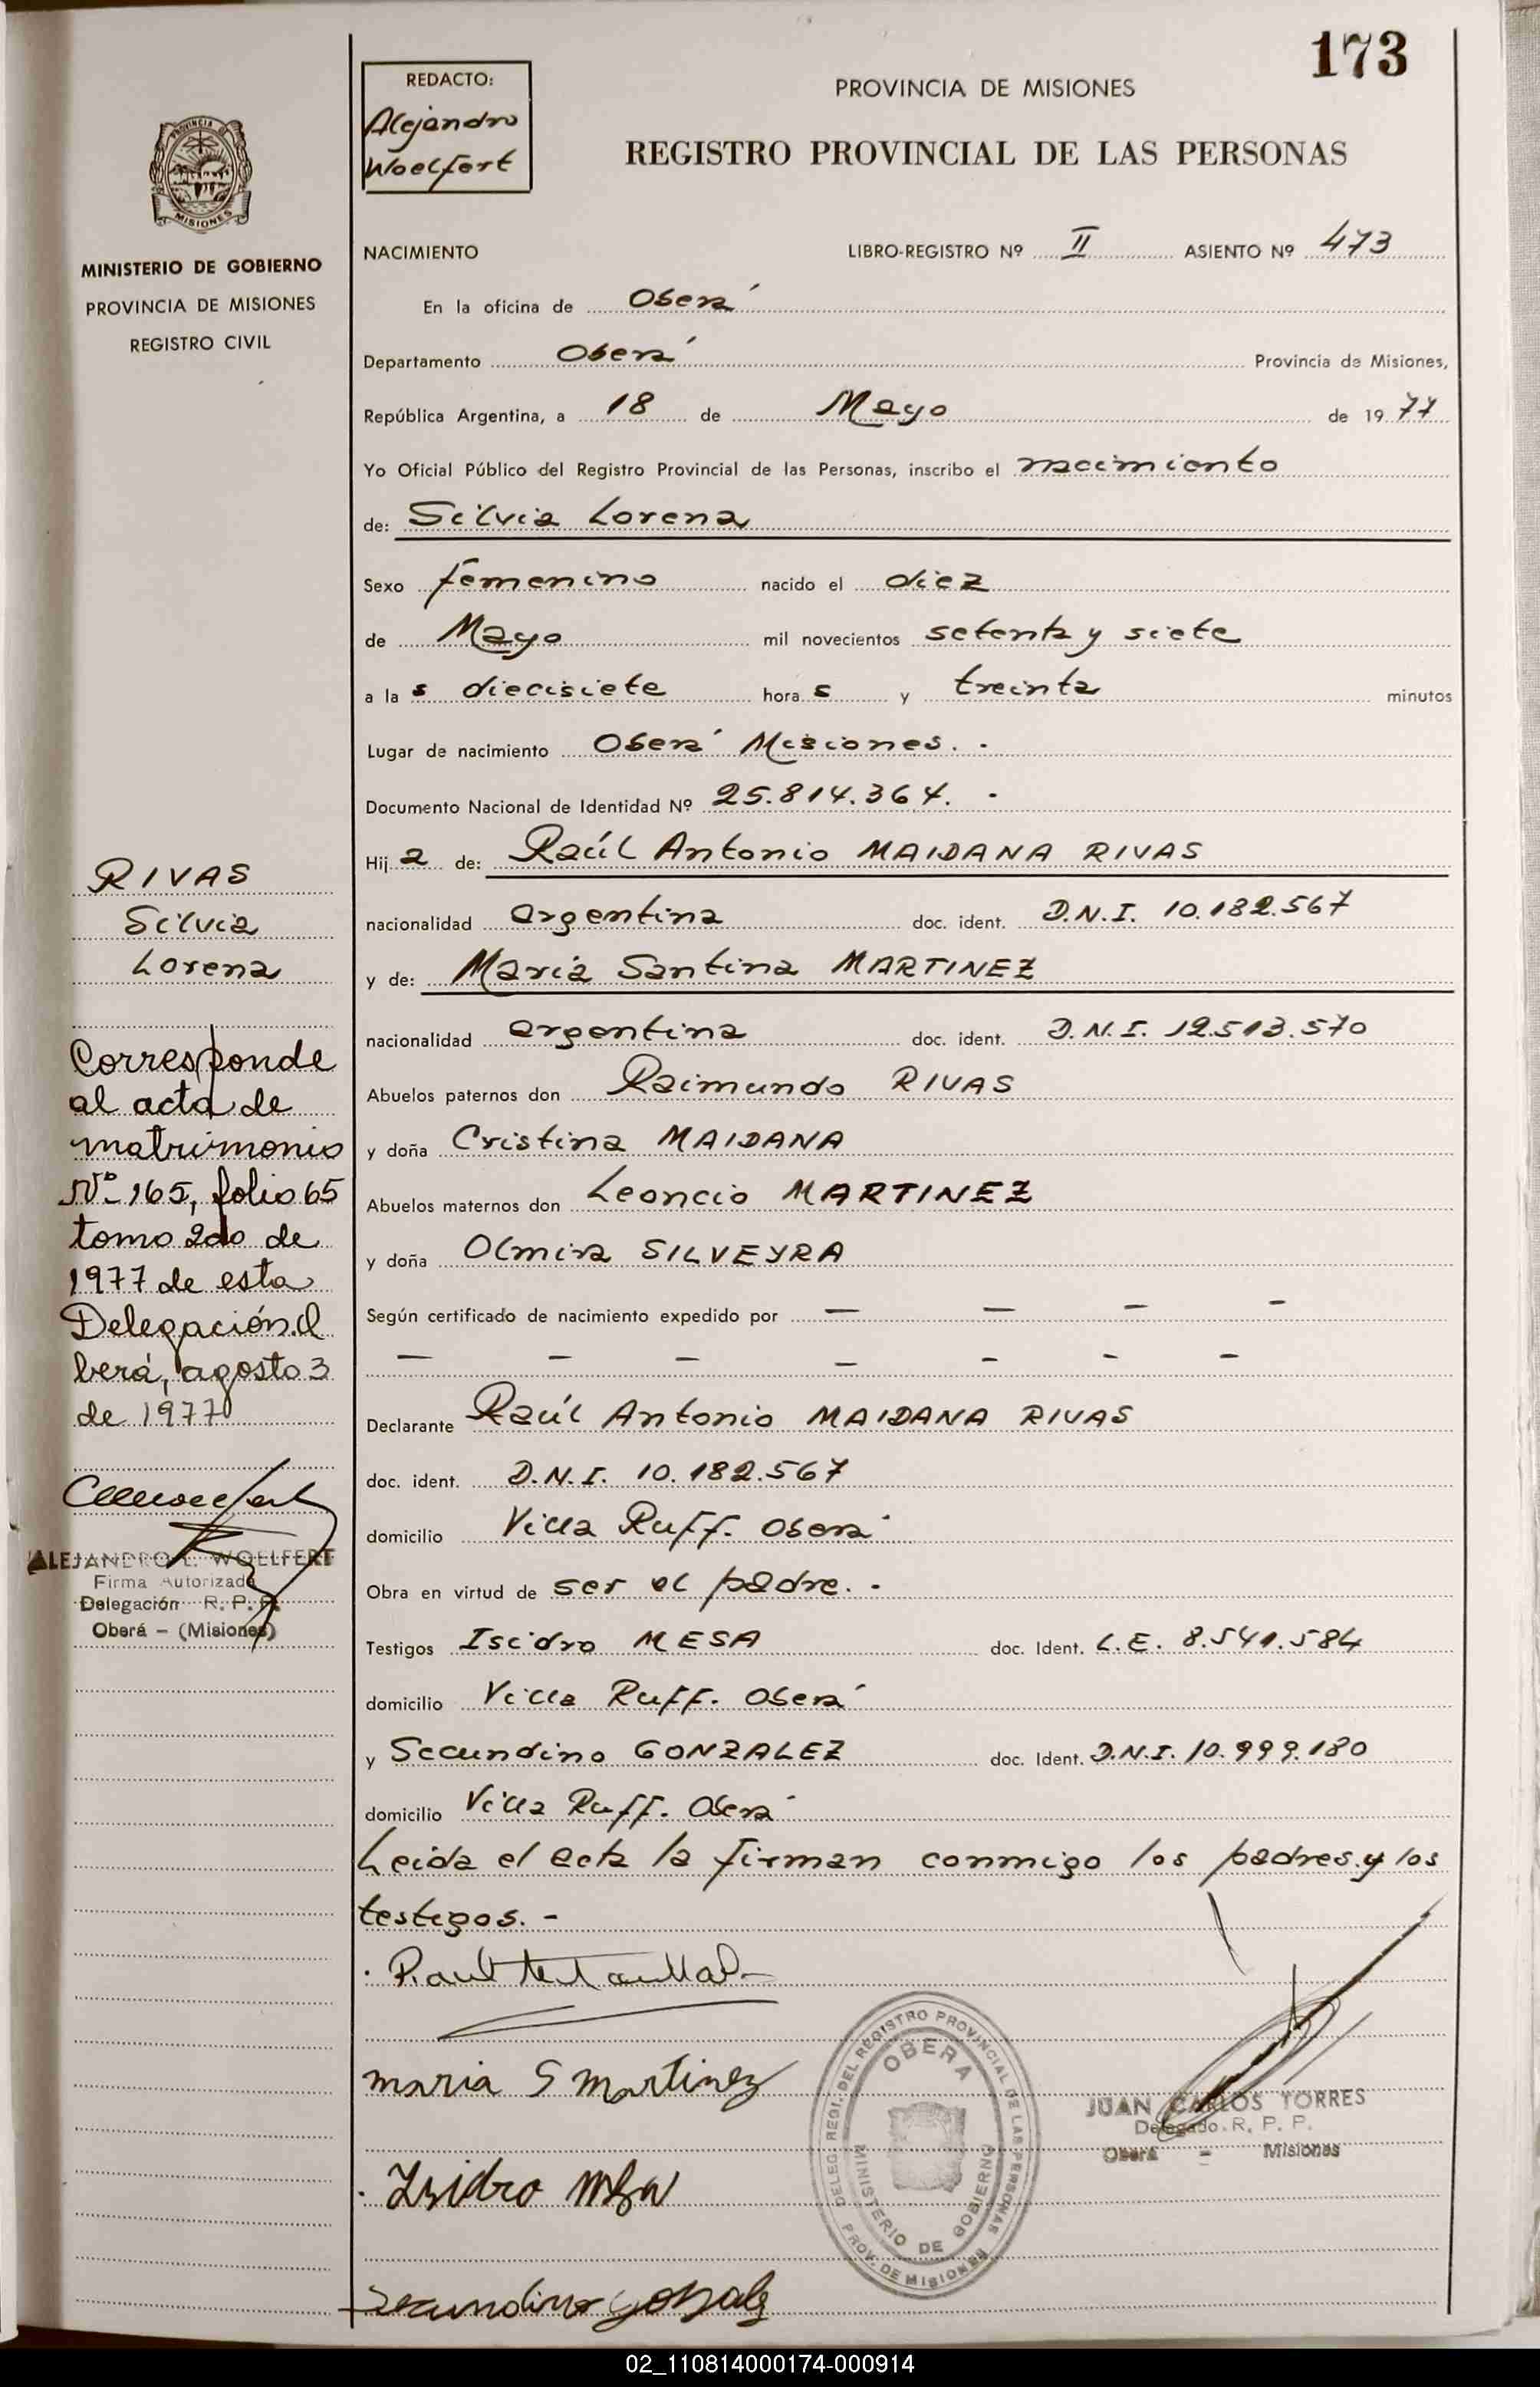 173
REDACTO:
Alejandro
Woelfert
PROVINCIA DE MISIONES
REGISTRO PROVINCIAL DE LAS PERSONAS
PROVINCIA DE
MISIONES
MINISTERIO DE GOBIERNO
PROVINCIA DE MISIONES
REGISTRO CIVIL
NACIMIENTO LIBRO-REGISTRO Nº II ASIENTO Nº 473
En la oficina de Oberá
Departamento Oberá Provincia de Misiones,
República Argentina, a 18 de Mayo de 1977
Yo Oficial Público del Registro Provincial de las Personas, inscribo el nacimiento
de: Silvia Lorena
Sexo femenino nacido el diez
de Mayo mil novecientos setenta y siete
a la s diecisiete hora s y treinta minutos
Lugar de nacimiento Oberá Misiones. -
Documento Nacional de Identidad Nº 25.814.364. -
Hij a de: Raúl Antonio MAIDANA RIVAS
nacionalidad argentina doc. ident. D.N.I. 10.182.567
y de: María Santina MARTINEZ
nacionalidad argentina doc. ident. D.N.I. 12.513.570
Abuelos paternos don Raimundo RIVAS
y doña Cristina MAIDANA
Abuelos maternos don Leoncio MARTINEZ
y doña Olmira SILVEYRA
Según certificado de nacimiento expedido por — — — —
— — — — — — —
Declarante Raúl Antonio MAIDANA RIVAS
doc. ident. D.N.I. 10.182.567
domicilio Villa Ruff. Oberá
Obra en virtud de ser el padre. -
Testigos Isidro MESA doc. Ident. L.E. 8.541.584
domicilio Villa Ruff. Oberá
y Secundino GONZALEZ doc. Ident. D.N.I. 10.999.180
domicilio Villa Ruff. Oberá
Leida el acta la firman conmigo los padres y los
testigos. -
RIVAS
Silvia
Lorena
Corresponde
al acta de
matrimonio
Nº 165, folio 65
tomo 2do de
1977 de esta
Delegación. O
berá, agosto 3
de 1977
ALEJANDRO E. WOELFERT
Firma Autorizada
Delegación R. P. P.
Oberá - (Misiones)
maria S martinez
Isidro Mesa
Secundino Gonzalez
DELEG. REGI. DEL REGISTRO PROVINCIAL DE LAS PERSONAS
OBERA
MINISTERIO DE GOBIERNO
PROV. DE MISIONES
JUAN CARLOS TORRES
Delegado R. P. P.
Oberá - Misiones
02_110814000174-000914